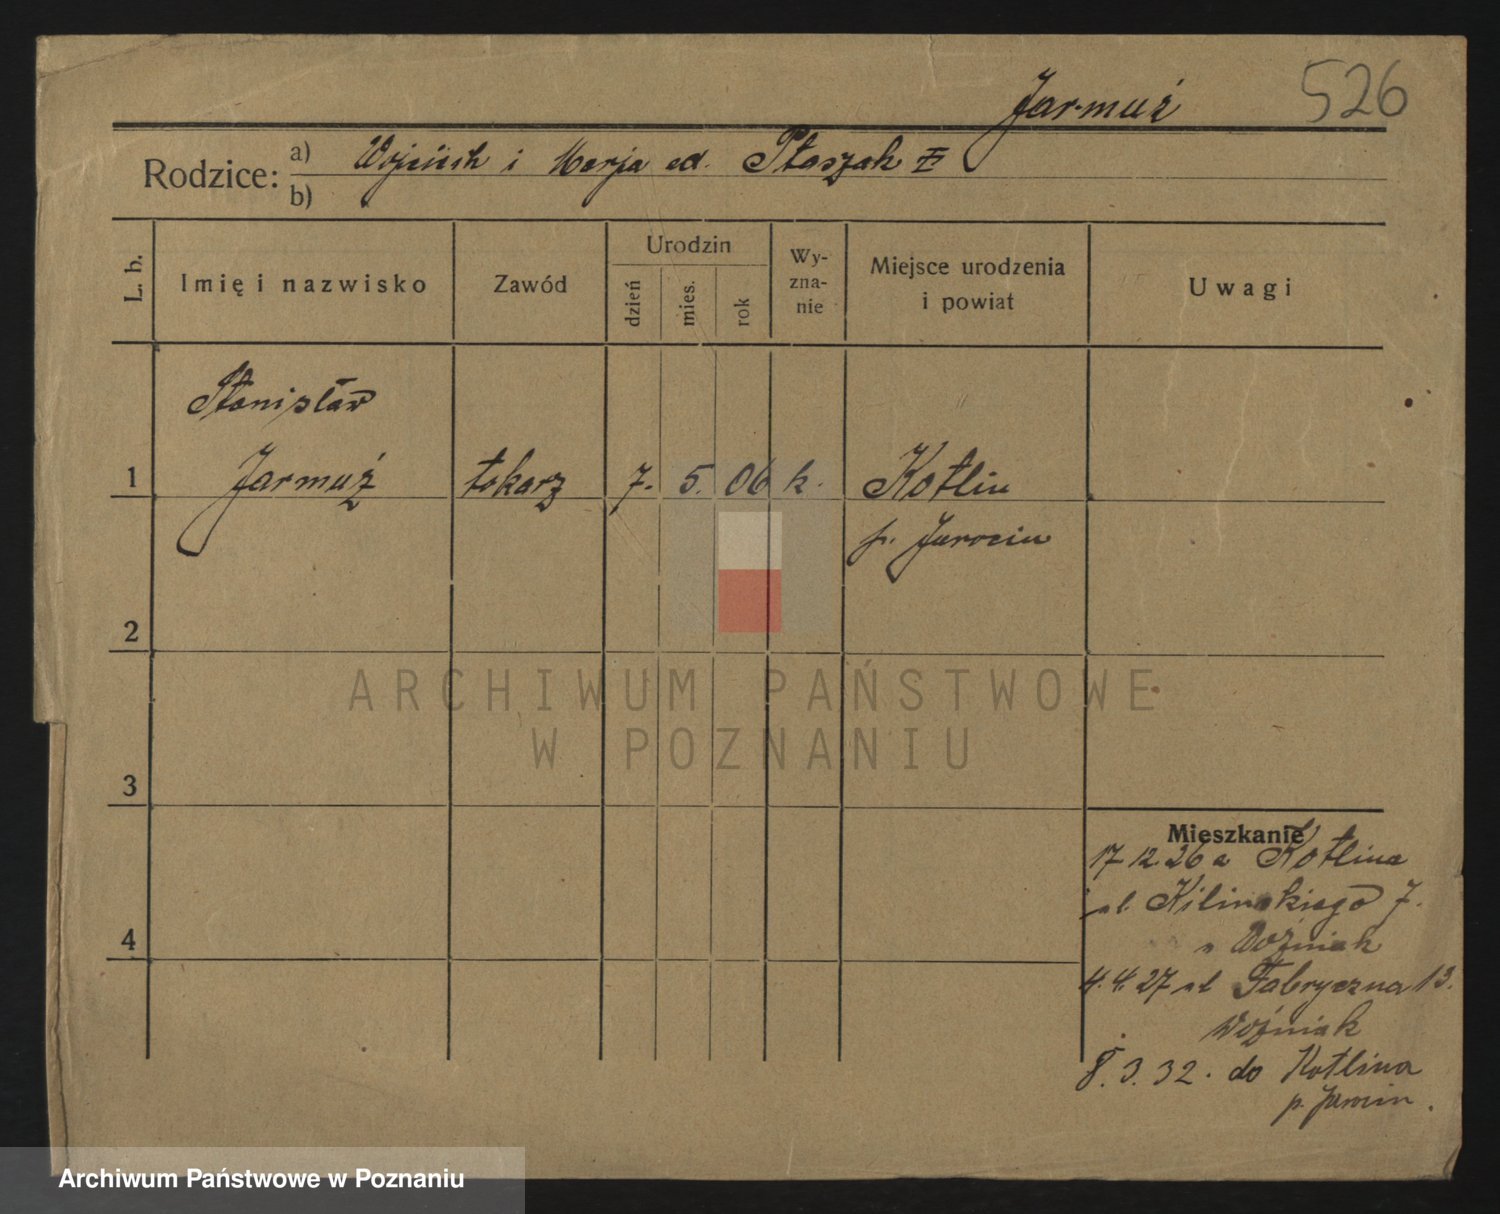 Jarmuż
526
Rodzice: a) Wojciech i Marja od. Ptaszak
b)
L. b.
Imię i nazwisko
Zawód
Urodzin
dzień
mies.
rok
Wy-
zna-
nie
Miejsce urodzenia
i powiat
Uwagi
Stanisław
1 Jarmuż tokarz 7. 5. 06 k. Kotlin
p. Jarocin
2
ARCHIWUM PAŃSTWOWE
W POZNANIU
3
Mieszkanie
17 12. 26 z Kotlina
ul. Kilińskiego 7.
u Woźniak
4
4. 4. 27 ul Fabryczna 13.
Woźniak
8. 3. 32. do Kotlina
p. Jarocin.
Archiwum Państwowe w Poznaniu